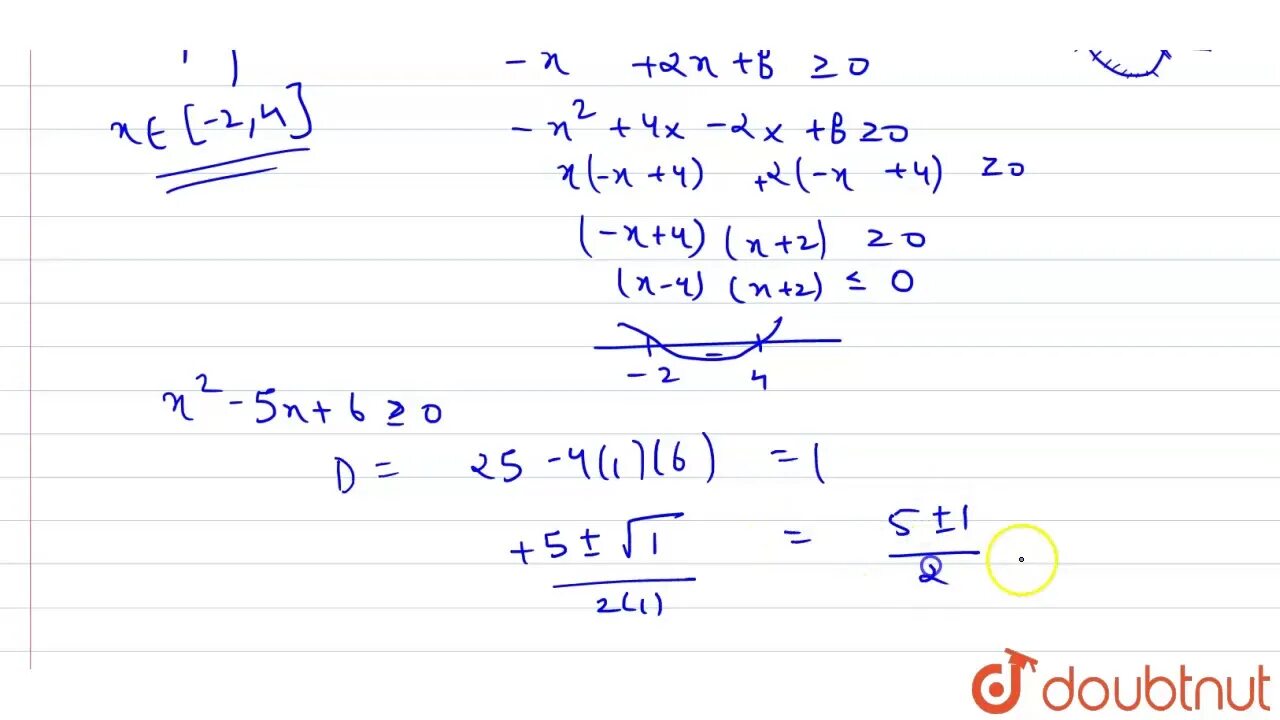 -x +2x+8 ≥0
x∈[-2,4]
-x² +4x -2x +8≥0
x(-x+4) +2(-x +4) ≥0
(-x+4) (x+2) ≥0
(x-4) (x+2) ≤ 0
-
-2 4
x²-5x+6 ≥0
D = 25 -4(1)(6) =1
+5±√1 / 2(1) = 5±1 / 2
doubtnut